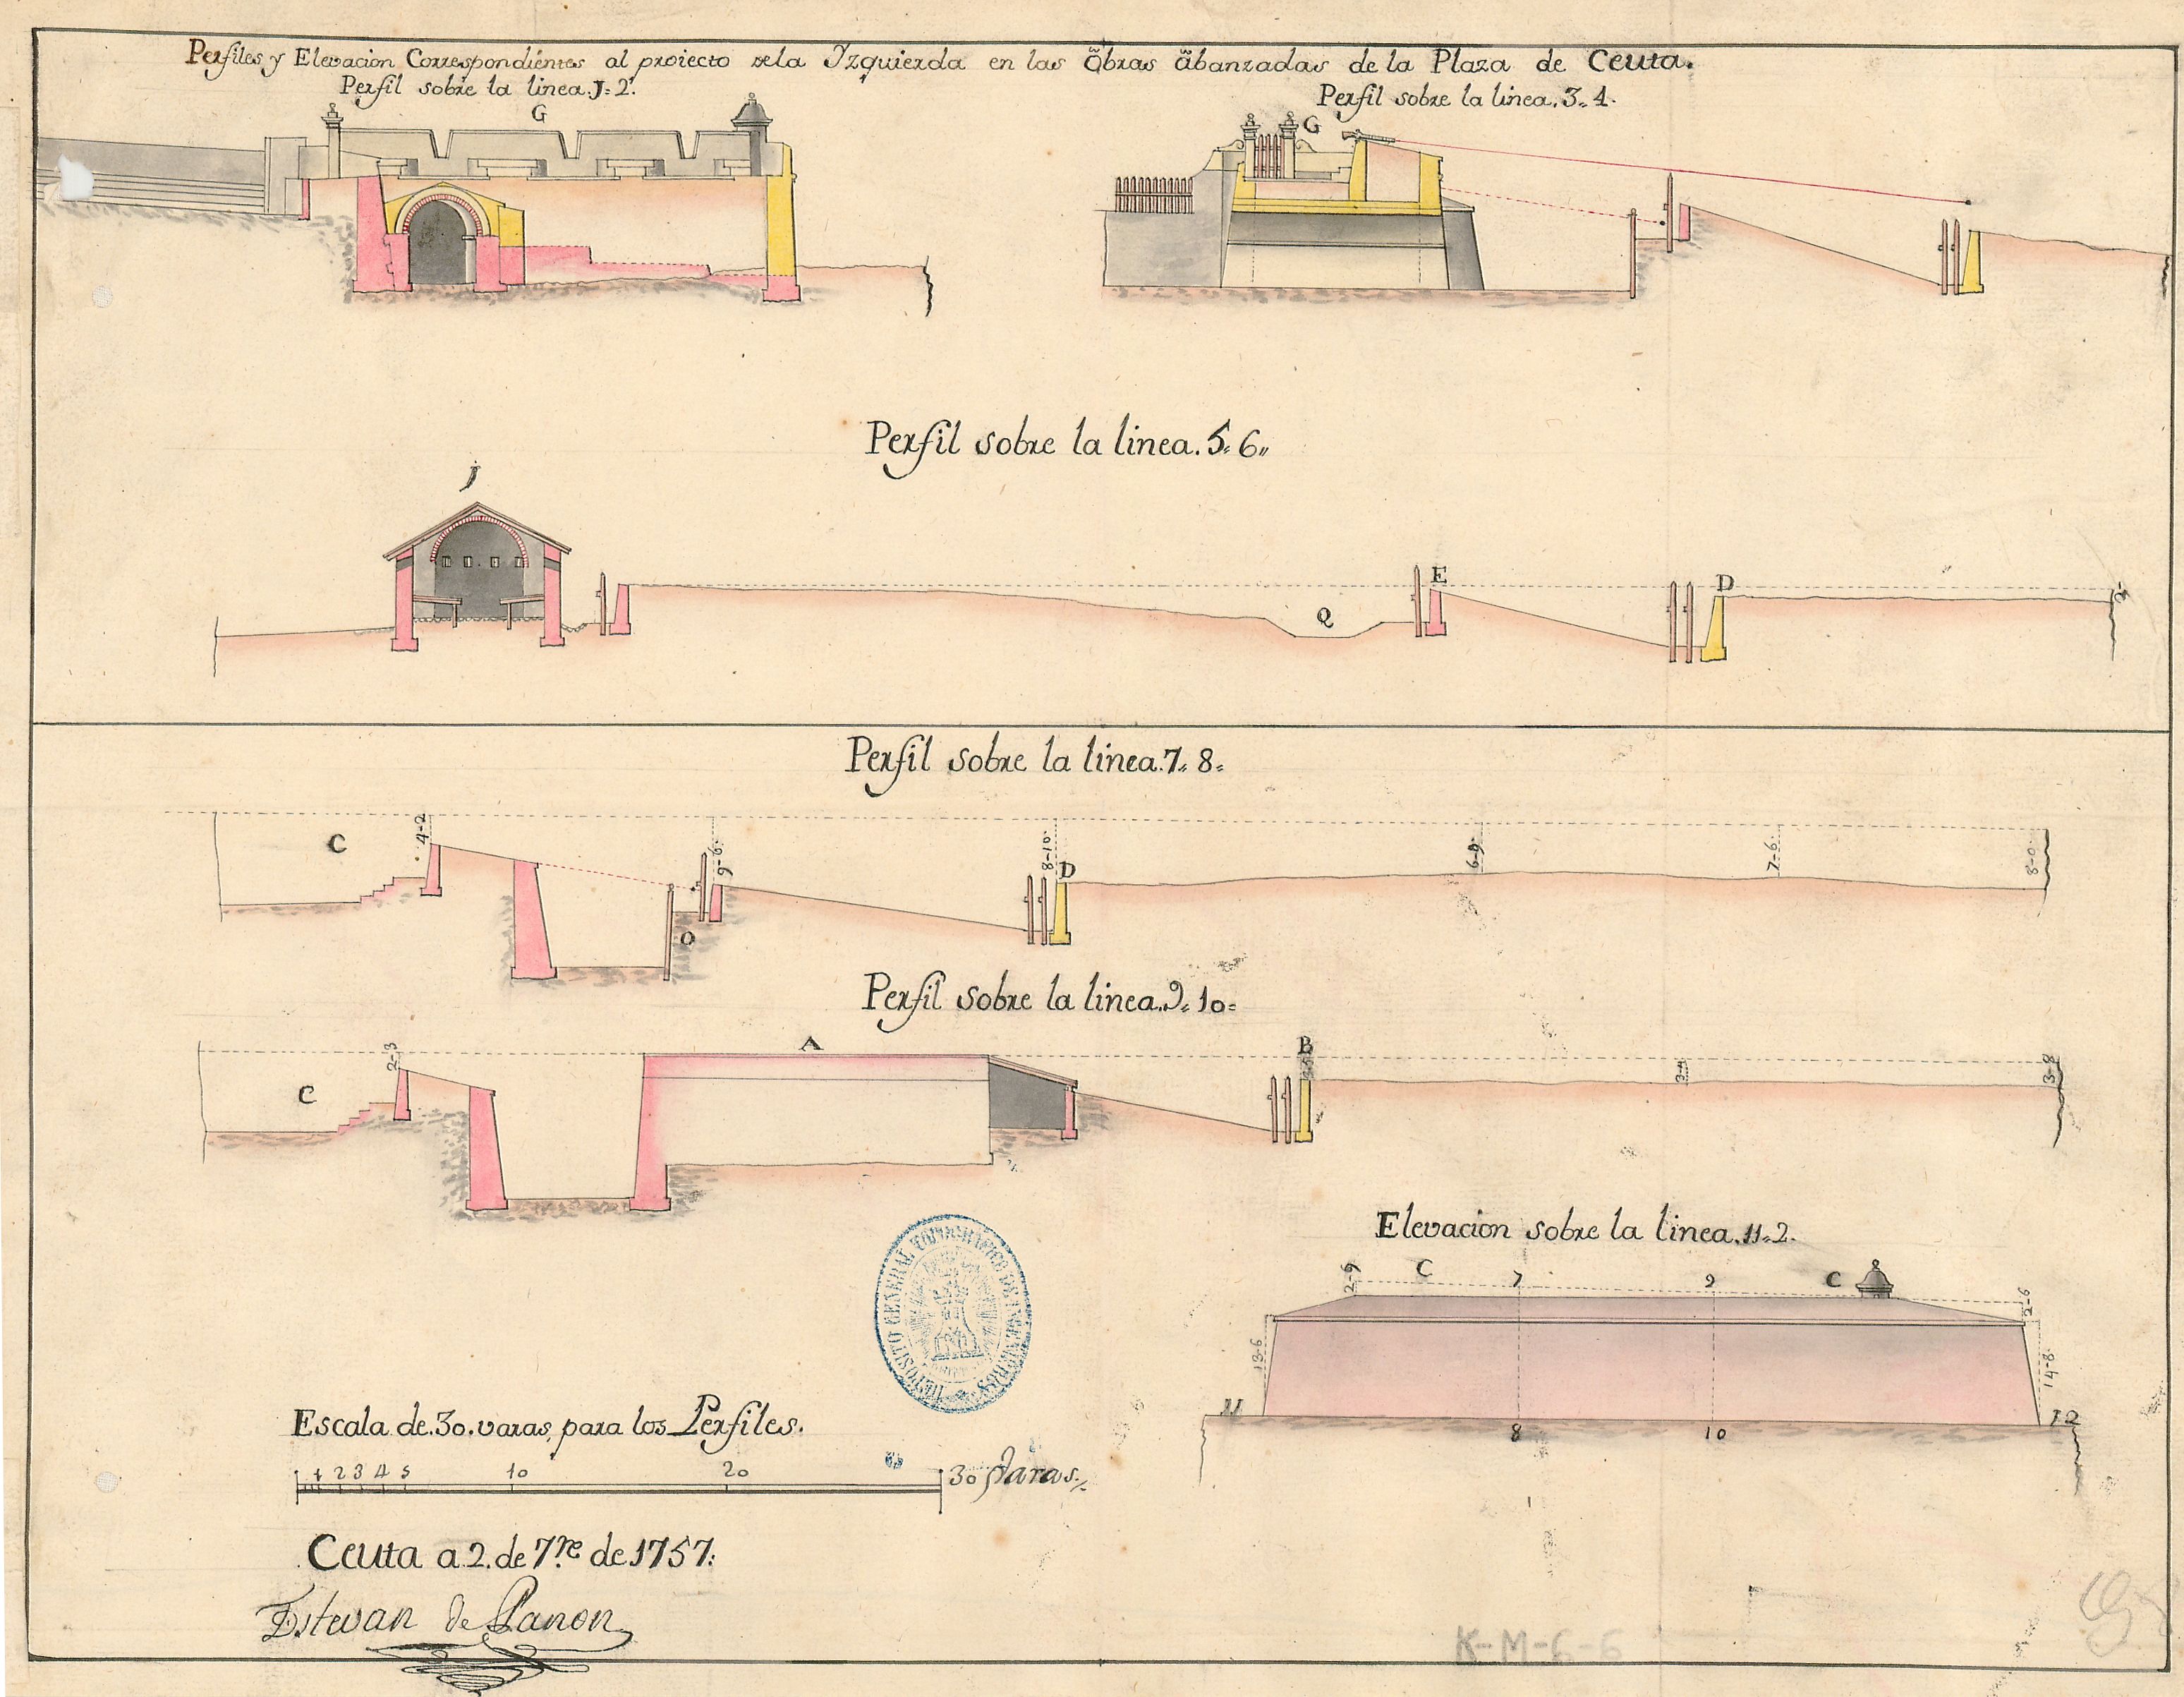 Perfiles y Elevacion Correspondientes al proiecto dela Yzquierda en las Obras abanzadas de la Plaza de Ceuta.
Perfil sobre la linea. J=2.
G
Perfil sobre la linea. 3=4.
G
Perfil sobre la linea. 5=6"
J
Q
E
D
Perfil sobre la linea. 7=8=
C
4-2
9-6
O
8-10
D
6-9
7-6
8-0
Perfil sobre la linea. 9=10=
C
2-3
A
B
3-8
Elevacion sobre la linea. 11=2.
2-9
C
7
9
C
2-6
13-6
14-8
11
8
10
12
DEPOSITO GENERAL TOPOGRAFICO DE INGENIEROS
Escala de 30. varas, para los Perfiles.
1 2 3 4 5 10 20 30 Varas.
Ceuta a 2. de 7re de 1757.
Estevan de Panon
K-M-6-6